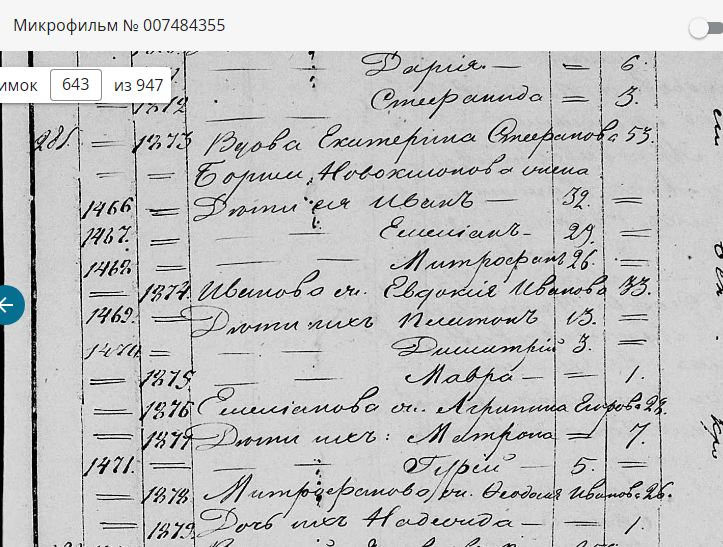 Микрофильм № 007484355
имок 643 из 947
— Дарія — = 6.
1872 — Стефанида = 3.
281. = 1873 Вдова Екатерина Стефанова 53.
= = Борши Новохлопова
1466 = Дѣти ея Иванъ — 32. =
1467. = — — Емеліанъ — 29. =
1468 = — — Митрофанъ 26. =
= 1874 Иванова ж. Евдокія Иванова 33.
1469. = Дѣти ихъ Платонъ 13. =
1470. = — — Димитрій 3. =
= 1875 — — Мавра — 1.
= 1876 Емеліанова ж. Агрипина Егорова 28.
= 1877 Дѣти ихъ: Матрона = 7.
1471. = — — Гурій — 5. =
= 1878 Митрофанова ж. Ѳеодосія Иванова 26.
= 1879 Дочь ихъ Надежда — 1.